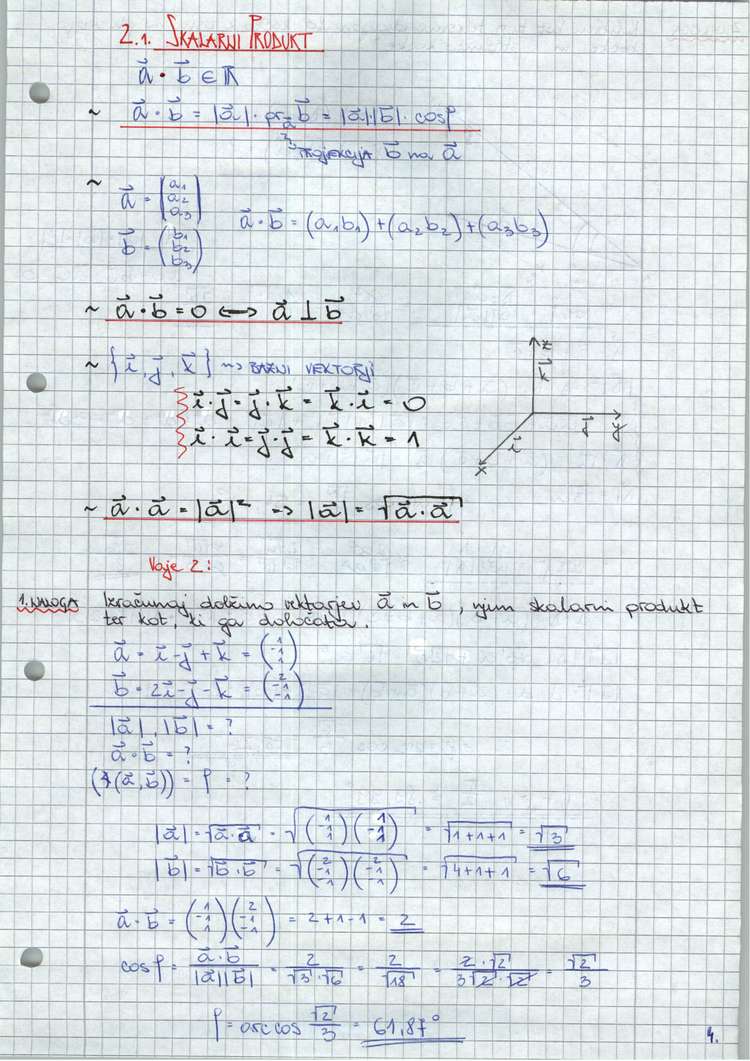 2.1. SKALARNI PRODUKT
a⃗ · b⃗ ∈ ℝ
~ a⃗ · b⃗ = |a⃗| · pr_a⃗ b⃗ = |a⃗||b⃗| · cos φ
projekcija b⃗ na a⃗
~ a⃗ = (a₁ a₂ a₃)
b⃗ = (b₁ b₂ b₃) a⃗ · b⃗ = (a₁b₁) + (a₂b₂) + (a₃b₃)
~ a⃗ · b⃗ = 0 ⟺ a⃗ ⊥ b⃗
~ {i⃗, j⃗, k⃗} ~> BAZNI VEKTORJI
i⃗ · j⃗ = j⃗ · k⃗ = k⃗ · i⃗ = 0
i⃗ · i⃗ = j⃗ · j⃗ = k⃗ · k⃗ = 1
z
k⃗
j⃗ y
i⃗
x
~ a⃗ · a⃗ = |a⃗|² => |a⃗| = √(a⃗ · a⃗)
Vaje 2:
1. NALOGA Izračunaj dolžino vektorjev a⃗ in b⃗, njun skalarni produkt
ter kot, ki ga določata.
a⃗ = i⃗ - j⃗ + k⃗ = (1 -1 1)
b⃗ = 2i⃗ - j⃗ - k⃗ = (2 -1 -1)
|a⃗|, |b⃗| = ?
a⃗ · b⃗ = ?
(∢(a⃗, b⃗)) = φ = ?
|a⃗| = √(a⃗ · a⃗) = √((1 -1 1)(1 -1 1)) = √(1+1+1) = √3
|b⃗| = √(b⃗ · b⃗) = √((2 -1 -1)(2 -1 -1)) = √(4+1+1) = √6
a⃗ · b⃗ = (1 -1 1)(2 -1 -1) = 2+1-1 = 2
cos φ = a⃗ · b⃗ / |a⃗||b⃗| = 2 / √3 · √6 = 2 / √18 = 2 · √2 / 3√2 · √2 = √2 / 3
φ = arc cos √2 / 3 = 61,87°
4.